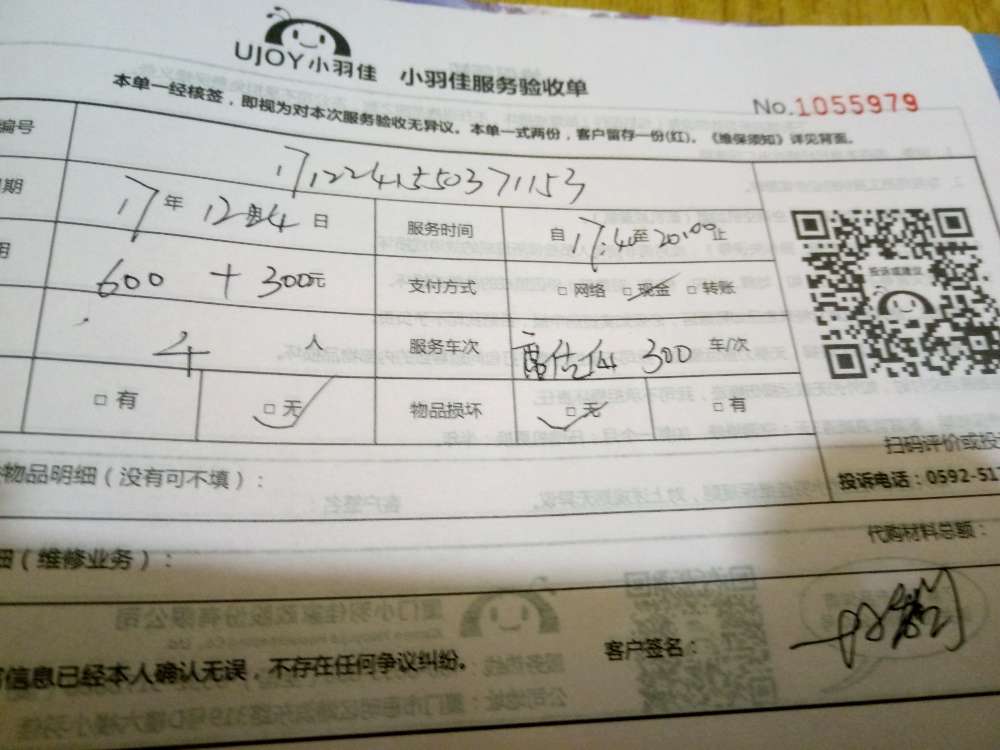 UJOY小羽佳 小羽佳服务验收单
本单一经核签，即视为对本次服务验收无异议。本单一式两份，客户留存一份(红)。《维保须知》详见背面。
No.1055979
编号 1712241550371153
期 17年12月4日 服务时间 自17:40至20:00止
用 600+300元 支付方式 □网络 □现金 □转账
4人 服务车次 300车/次
□有 □无 物品损坏 □无 □有
投诉或建议
扫码评价或投
投诉电话：0592-51
物品明细（没有可不填）：
代购材料总额：
细（维修业务）：
信息已经本人确认无误，不存在任何争议纠纷。 客户签名：